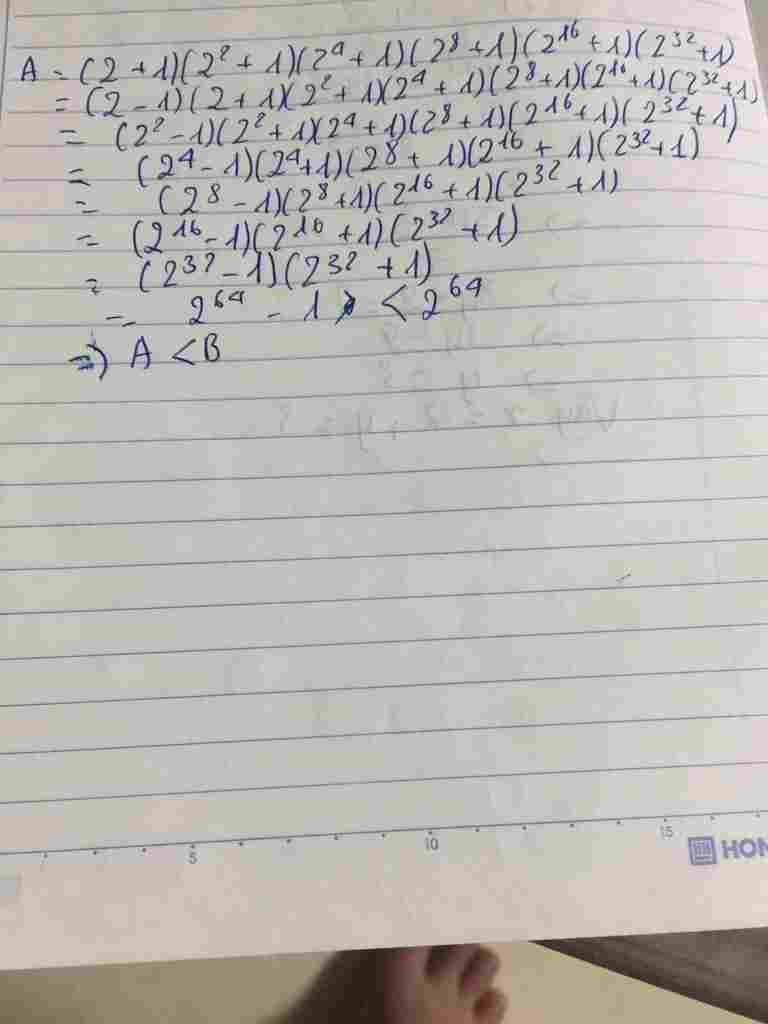 A = (2 + 1)(2² + 1)(2⁴ + 1)(2⁸ + 1)(2¹⁶ + 1)(2³² + 1)
= (2 - 1)(2 + 1)(2² + 1)(2⁴ + 1)(2⁸ + 1)(2¹⁶ + 1)(2³² + 1)
= (2² - 1)(2² + 1)(2⁴ + 1)(2⁸ + 1)(2¹⁶ + 1)(2³² + 1)
= (2⁴ - 1)(2⁴ + 1)(2⁸ + 1)(2¹⁶ + 1)(2³² + 1)
= (2⁸ - 1)(2⁸ + 1)(2¹⁶ + 1)(2³² + 1)
= (2¹⁶ - 1)(2¹⁶ + 1)(2³² + 1)
= (2³² - 1)(2³² + 1)
= 2⁶⁴ - 1 < 2⁶⁴
=> A < B
5 10 15
HON